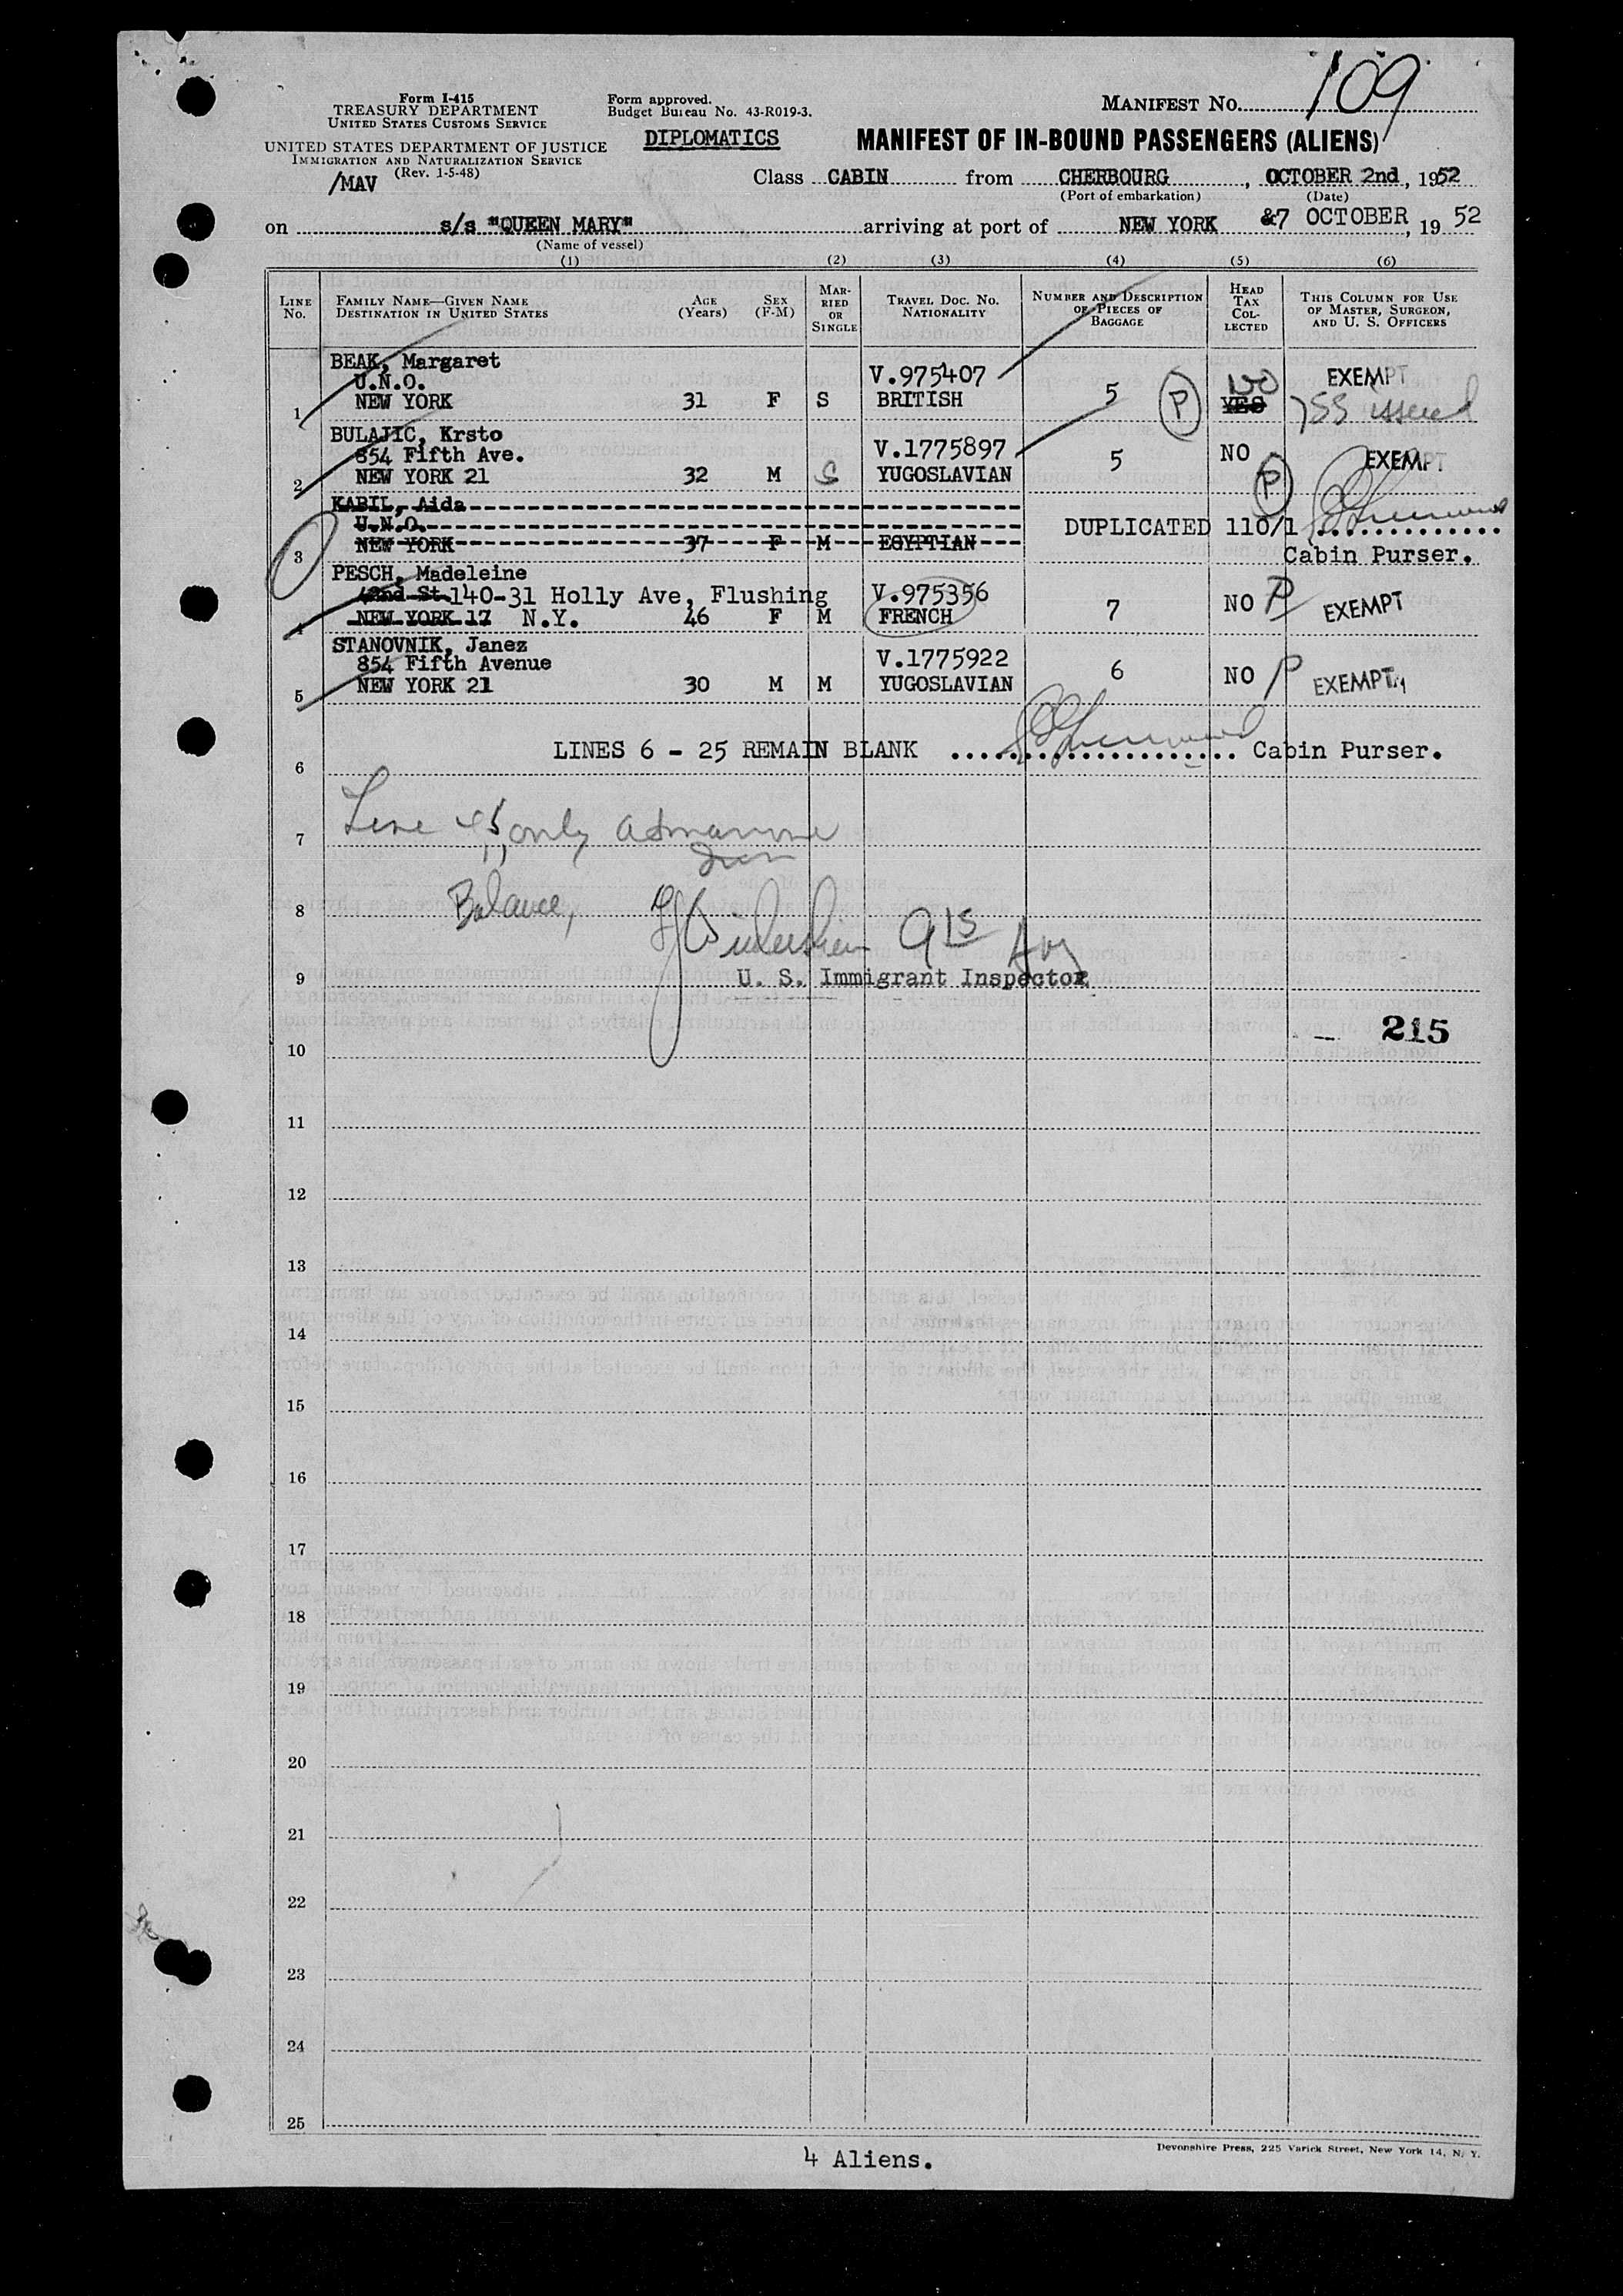 109
Form I-415
TREASURY DEPARTMENT
UNITED STATES CUSTOMS SERVICE
UNITED STATES DEPARTMENT OF JUSTICE
IMMIGRATION AND NATURALIZATION SERVICE
(Rev. 1-5-48)
/MAV
Form approved.
Budget Bureau No. 43-R019-3.
DIPLOMATICS
MANIFEST NO.
MANIFEST OF IN-BOUND PASSENGERS (ALIENS)
Class CABIN from CHERBOURG, OCTOBER 2nd, 1952
(Port of embarkation) (Date)
on s/s "QUEEN MARY" arriving at port of NEW YORK 7 OCTOBER, 19 52
(Name of vessel)
(1) (2) (3) (4) (5) (6)
LINE NO.
FAMILY NAME—GIVEN NAME
DESTINATION IN UNITED STATES
AGE (Years)
SEX (F-M)
MARRIED OR SINGLE
TRAVEL DOC. NO.
NATIONALITY
NUMBER AND DESCRIPTION OF PIECES OF BAGGAGE
HEAD TAX COLLECTED
THIS COLUMN FOR USE OF MASTER, SURGEON, AND U. S. OFFICERS
BEAK, Margaret
U.N.O. V.975407 NO EXEMPT
1 NEW YORK 31 F S BRITISH 5 P YES 755 issued
BULAJIC, Krsto
854 Fifth Ave. V.1775897 NO
2 NEW YORK 21 32 M S YUGOSLAVIAN 5 P EXEMPT
KABIL, Aida
U.N.O. DUPLICATED 110/1
3 NEW YORK 37 F M EGYPTIAN Cabin Purser.
PESCH, Madeleine
42nd St. 140-31 Holly Ave, Flushing V.975356
4 NEW YORK 17 N.Y. 46 F M FRENCH 7 NO P EXEMPT
STANOVNIK, Janez
854 Fifth Avenue V.1775922
5 NEW YORK 21 30 M M YUGOSLAVIAN 6 NO P EXEMPT
LINES 6 - 25 REMAIN BLANK Cabin Purser.
6
7 Line 4 5, only
8 Balance,
9 U. S. Immigrant Inspector
215
10
11
12
13
14
15
16
17
18
19
20
21
22
23
24
25
Devonshire Press, 225 Varick Street, New York 14, N. Y.
4 Aliens.